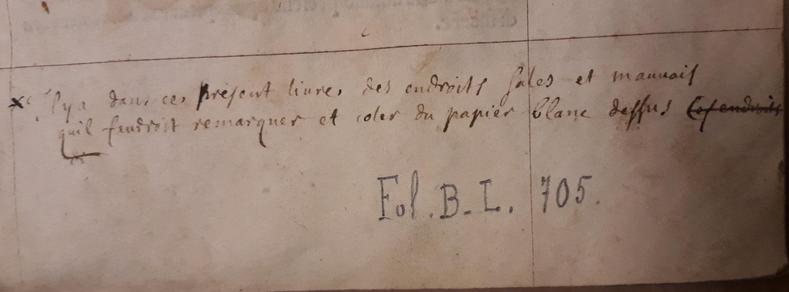 x Il y a dans ce present livre des endroits sales et mauvais
quil faudroit remarquer et coler du papier blanc dessus ces endroits
Fol. B-L. 705.